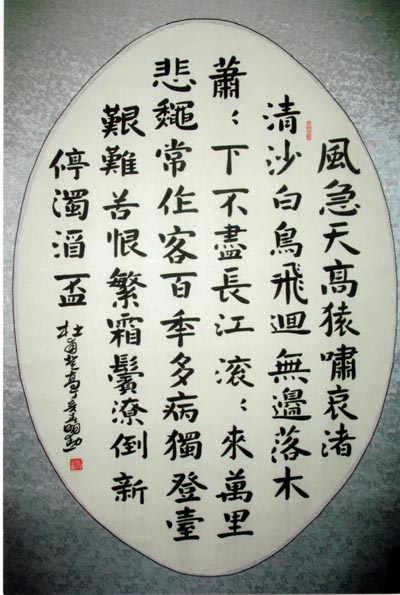 風急天高猿嘯哀渚
清沙白鳥飛迴無邊落木
蕭〻下不盡長江滚〻來萬里
悲龝常作客百年多病獨登臺
艱難苦恨繁霜鬢潦倒新
停濁酒盃
杜甫